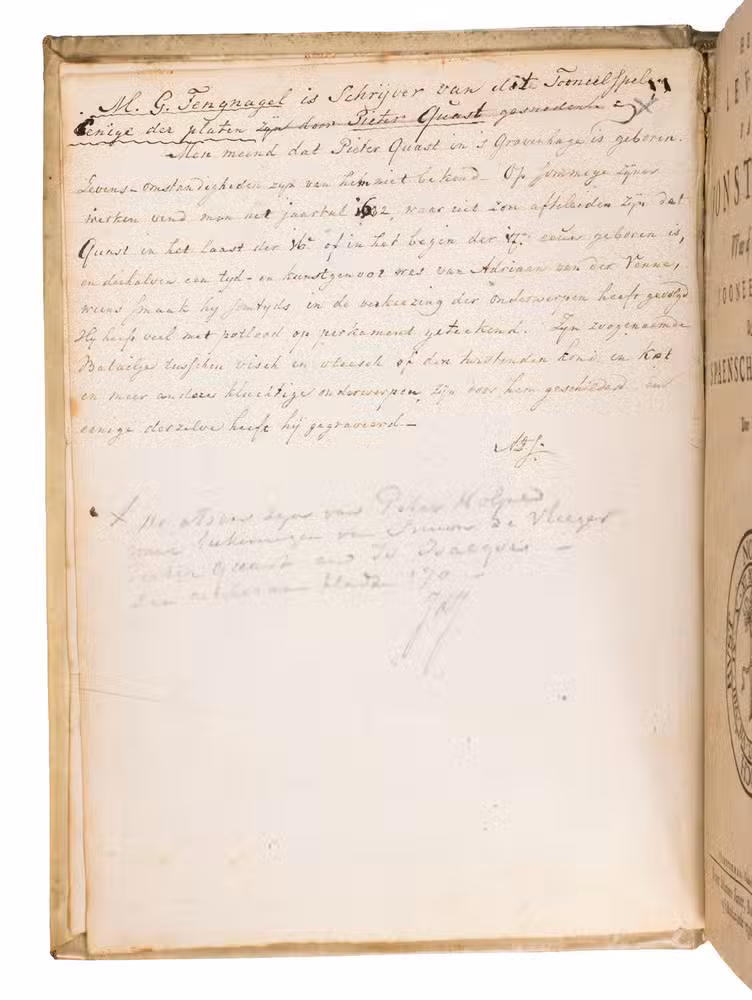 M. G. Tengnagel is Schrijver van dit Tooneelspel
eenige der platen zijn door Pieter Quast gesneden X
Men meend dat Pieter Quast in 's Gravenhage is geboren.
Levens-omstandigheden zyn van hem niet bekend - Op sommige zijner
werken vind man het jaartal 1632, waar uit zou afteleiden zyn dat
Quast in het laast der 16e of in het begin der 17e eeuw geboren is,
en derhalven een tyd- en kunstgenoot was van Adriaan van der Venne,
wiens smaak hij somtyds in de verkiezing der onderwerpen heeft gevolgd
Hij heeft veel met potlood op perkament geteekend. Zyn zoogenaamde
Batailje tusschen visch en vleesch of den twistenden hond en kat
en meer andere kluchtige onderwerpen, zijn door hem geschilderd en
eenige derzelve heeft hij gegraveerd -
X De etsen zijn van Pieter Nolpe
naar tekeningen van Simon de Vlieger
Pieter Quast en Is Isacqsz -